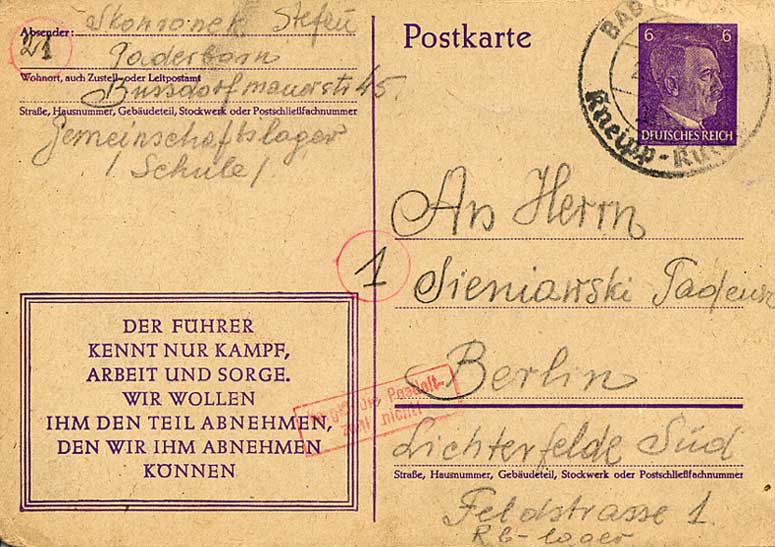 Absender: Skowronek Stefan
21
Paderborn
Wohnort, auch Zustell- oder Leitpostamt
Bussdorfmauerstr 45.
Straße, Hausnummer, Gebäudeteil, Stockwerk oder Postschließfachnummer
Gemeinschaftslager
/ Schule /
DER FÜHRER
KENNT NUR KAMPF,
ARBEIT UND SORGE.
WIR WOLLEN
IHM DEN TEIL ABNEHMEN,
DEN WIR IHM ABNEHMEN
KÖNNEN
Postkarte
6 6
DEUTSCHES REICH
BAD
Kneipp-
An Herrn
1
Sieniawski Tadeusz
Berlin
Lichterfelde Süd
Straße, Hausnummer, Gebäudeteil, Stockwerk oder Postschließfachnummer
Feldstrasse 1.
Rb-lager
die Postleit-
zahl nicht